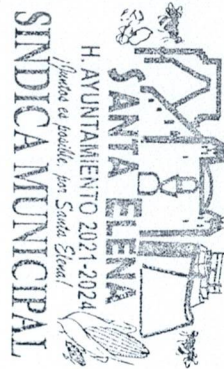 SANTA ELENA
H. AYUNTAMIENTO 2021-2024
¡Juntos es posible, por Santa Elena!
SINDICA MUNICIPAL